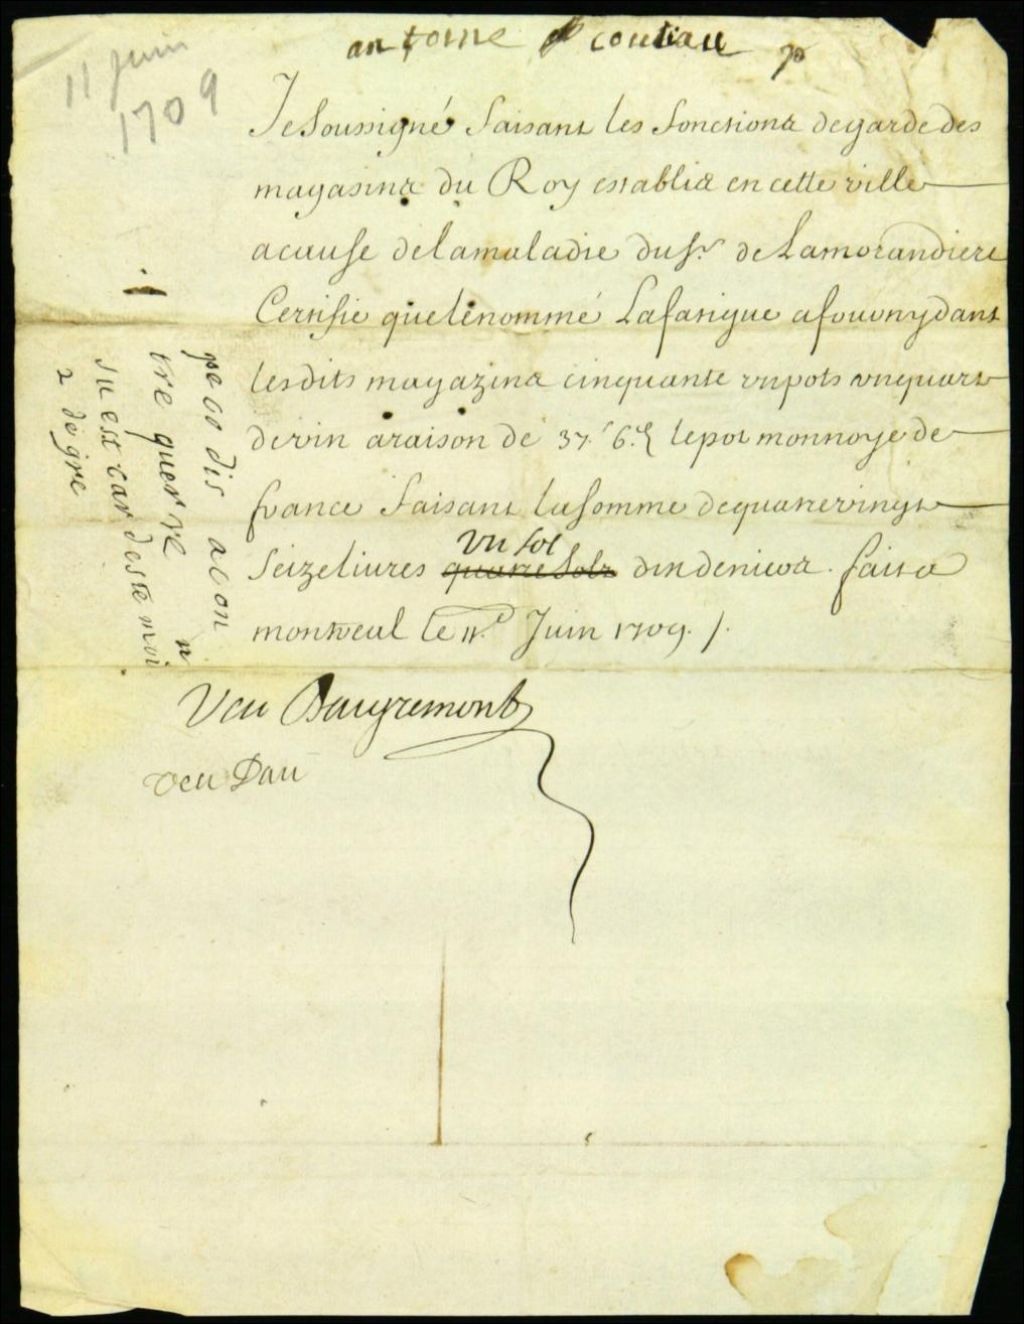 11 Juin
1709
antoine coutiau
Je Soussigné faisant les fonctions de garde des
magasins du Roy establis en cette ville
a cause de la maladie du Sr. de Lamorandiere
Certifie que le nommé Lafatigue a fourny dans
lesdits magazins cinquante un pots un quart
de vin a raison de 37s 6d le pot monnoye de
france faisant la somme de quatrevingt
Seize livres quatre Solz dix deniers. fait a
un sol
montreal le 11e. Juin 1709 /.
Veu Baugremont
veu Dau